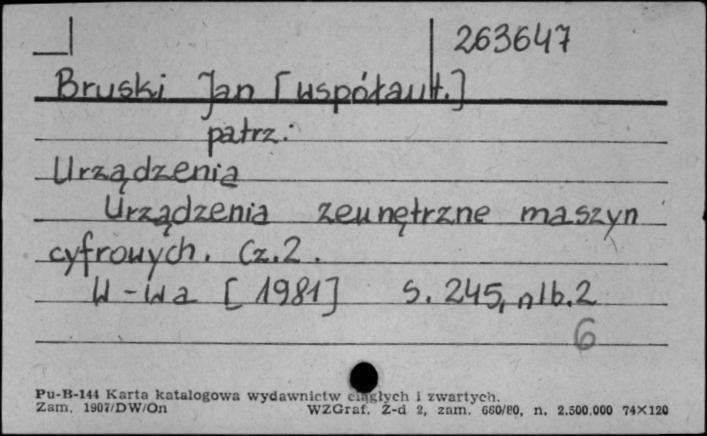 263647
Bruski Jan [współaut.]
patrz:
Urządzenia
Urządzenia zewnętrzne maszyn
cyfrowych. Cz.2.
W-wa [1981] s. 245, nlb.2
6
Pu-B-144 Karta katalogowa wydawnictw ciągłych i zwartych.
Zam. 1907/DW/On WZGraf. Z-d 2, zam. 660/80, n. 2.500.000 74×120